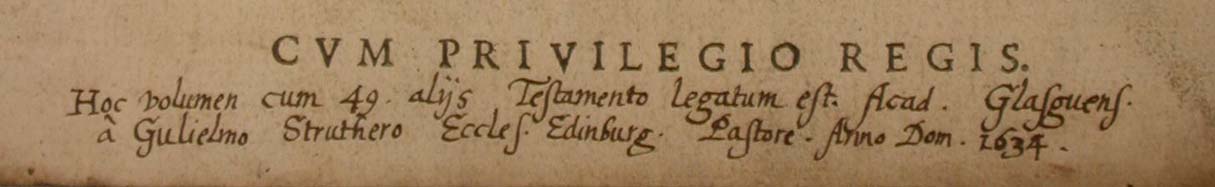 CVM PRIVILEGIO REGIS.
Hoc volumen cum 49. alijs Testamento legatum est. Acad. Glasguens.
à Gulielmo Struthero Eccles. Edinburg. Pastore. Anno Dom. 1634.